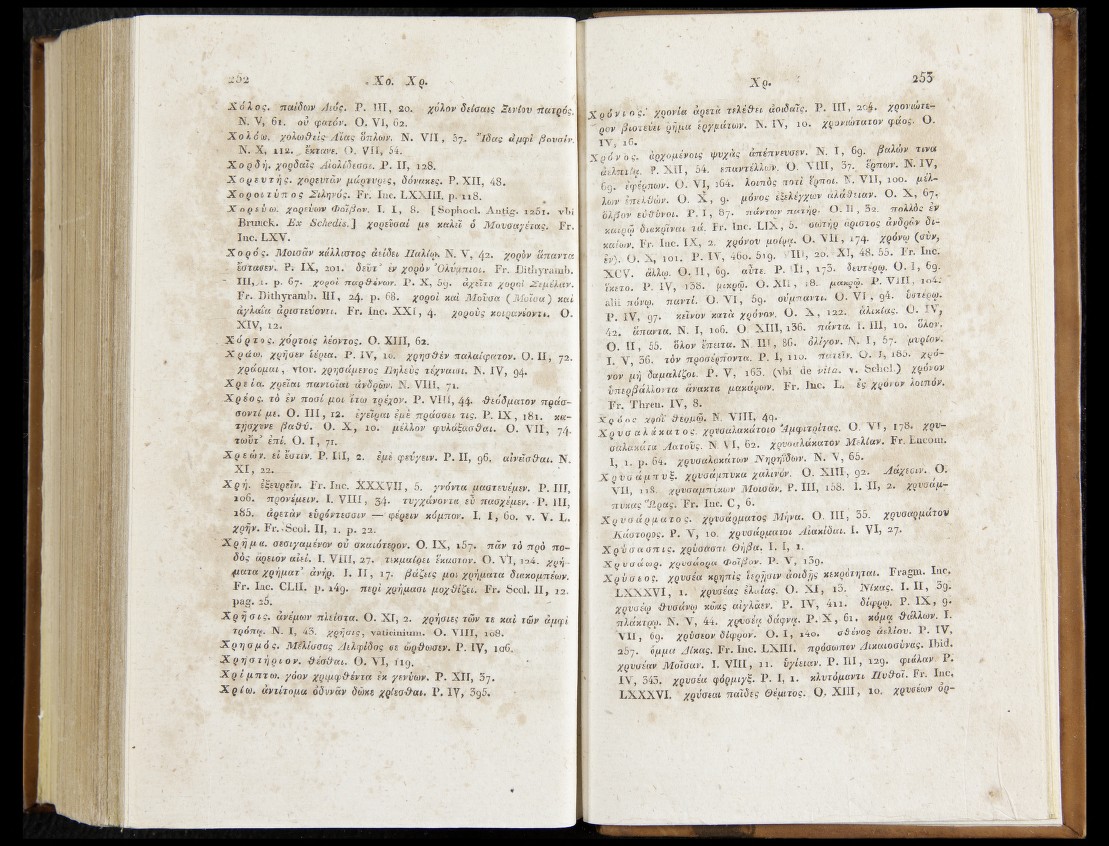 252 Χο. Χρ.
Χόλος. παίδων Διός. P. III, 20. χόλον δείσαις Ξενίου πατρός.
N. V, 61. οὐ φατόν. O. VI, 62.
Χολόω. χολωθεὶς Αἴας ὅπλων. N. VII, 37. Ἴδας ἀμφὶ βουσίν.
N. X, 112. ἔκτανε. O. VII, 54.
Χορδή. χορδαῖς Αἰολίδεσσι. P. II, 128.
Χορευτής. χορευτᾶν μάρτυρες, δόνακες. P. XII, 48.
Χοροιτύπος Σιληνός. Fr. Inc. LXXIII, p. 118.
Χορεύω. χορεύων Φοῖβον. I. I, 8. [Sophocl. Antig. 1251. vbi
Brunck. Ex Schedis.] χορεῦσαί με καλεῖ ὁ Μουσαγέτας. Fr.
Inc. LXV.
Χορός. Μοισᾶν κάλλιστος ἀείδει Παλίῳ. N. V, 42. χορὸν ἅπαντα
ἔστασεν. P. IX, 201. δεῦτ' ἐν χορὸν Ὀλύμπιοι. Fr. Dithyramb.
III, 1. p. 67. χοροὶ παρθένων. P. X, 59. ἀχεῖτε χοροὶ Σεμέλαν.
Fr. Dithyramb. III, 24. p. 68. χοροὶ καὶ Μοῖσα (Μοῖσα) καὶ
ἀγλαΐα ἀριστεύοντι. Fr. Inc. XXI, 4. χοροὺς κοιρανέοντι. O.
XIV, 12.
Χόρτος. χόρτοις λέοντος. O. XIII, 62.
Χράω. χρῆσεν ἱέρεα. P. IV, 10. χρησθὲν παλαίφατον. O. II, 72.
χράομαι, vtor. χρησάμενος Πηλεὺς τέχναισι. N. IV, 94.
Χρεία. χρεῖαι παντοῖαι ἀνδρῶν. N. VIII, 71.
Χρέος. τὸ ἐν ποσί μοι ἴτω τρέχον. P. VIII, 44. θεόδματον πράσ-
σοντί με. O. III, 12. ἐγεῖραι ἐμὲ πράσσει τις. P. IX, 181. κα-
τῄσχυνε βαθύ. O. X, 10. μέλλον φυλάξασθαι. O. VII, 74.
τωΰτ' ἐπί. O. I, 71.
Χρεών. εἰ ἔστιν. P. III, 2. ἐμὲ φεύγειν. P. II, 96. αἰνεῖσθαι. N.
XI, 22.
Χρή. ἐξευρεῖν. Fr. Inc. XXXVII, 5. γνόντα μαστευέμεν. P. III,
106. προνέμειν. I. VIII, 34. τυγχάνοντα εὖ πασχέμεν. P. III,
185. ἀρετὰν εὑρόντεσσιν — φέρειν κόμπον. I. I, 60. v. V. L.
χρῆν. Fr. Scol. II, 1. p. 22.
Χρῆμα. σεσιγαμένον οὐ σκαιότερον. O. IX, 157. πᾶν τὸ πρὸ πο-
δὸς ἄρειον αἰεί. I. VIII, 27. τεκμαίρει ἕκαστον. O. VI, 124. χρή-
ματα χρήματ' ἀνήρ. I. II, 17. βάξεις μοι χρήματα διακομπέων.
Fr. Inc. CLII. p. 149. περὶ χρήμασι μοχθίζει. Fr. Scol. II, 12.
pag. 25.
Χρῆσις. ἀνέμων πλείστα. O. XI, 2. χρήσιες τῶν τε καὶ τῶν ἀμφὶ
τρόπῳ. N. I, 43. χρῆσις, vaticinium. O. VIII, 108.
Χρησμός. Μελίσσας Δελφίδος σε ὤρθωσεν. P. IV, 106.
Χρηστήριον. θέσθαι. O. VI, 119.
Χρίμπτω. γόον χριμφθέντα ἐκ γενύων. P. XII, 37.
Χρίω. ἀντίτομα ὀδυνᾶν δῶκε χρίεσθαι. P. IV, 395.
Χρ. 253
Χρόνιος. χρονία ἀρετὰ τελέθει ἀοιδαῖς. P. III, 204. χρονιώτε-
ρον βιοτεύει ῥῆμα ἐργμάτων. N. IV, 10. χρονιώτατον φάος. O.
IV, 16.
Χρόνος. ἀρχομένοις ψυχὰς ἀπέπνευσεν. N. I, 69. βαλὼν τινα
ἀελπίᾳ. P. XII, 54. ἐπαντέλλων. O. VIII, 37. ἕρπων. N. IV,
69. ἐφέρπων. O. VI, 164. λοιπὸς ποτὶ ἕρποι. N. VII, 100. μέλ-
λων ἐπελθών. O. X, 9. μόνος ἐξελέγχων ἀλάθειαν. O. X, 67.
ὄλβον εὐθύνοι. P. I, 87. πάντων πατήρ. O. II, 32. πολλὸς ἐν
καιρῷ διακρίναι τά. Fr. Inc. LIX, 5. σωτὴρ ἄριστος ἀνδρῶν δι-
καίων. Fr. Inc. IX, 2. χρόνου μοῖρα. O. VII, 174. χρόνῳ (σύν,
ἐν). O. X, 101. P. IV, 460. 519. VIII, 20. XI, 48. 55. Fr. Inc.
XCV. ἄλλῳ. O. II, 69. αὖτε. P. III, 173. δευτέρῳ. O. I, 69.
ἵκετο. P. IV, 138. μικρῷ. O. XII, 18. μακρῷ. P. VIII, 104.
alii πόνῳ. παντί. O. VI, 59. σύμπαντι. O. VI, 94. ὑστέρῳ.
P. IV, 97. κεῖνον κατὰ χρόνον. O. X, 122. ἁλικίας. O. IV,
42. ἅπαντα. N. I, 106. O. XIII, 136. πάντα. I. III, 10. ὅλον.
O. II, 55. ὅλον ἔπειτα. N. III, 86. ὀλίγον. N. I, 57. μυρίον.
I. V, 36. τὸν προσέρποντα. P. I, 110. πατεῖν. O. I, 185. χρό-
νον μὴ δαμαλίζοι. P. V, 163. (vbi de vita. v. Schol.) χρόνον
ὑπερβάλλοντα ἄνακτα μακάρων. Fr. Inc. L. ἐς χρόνον λοιπόν.
Fr. Thren. IV, 8.
Χρόος. χροῒ θερμῷ. N. VIII, 49.
Χρυσαλάκατος. χρυσαλακάτοιο Ἀμφιτρίτας. O. VI, 178. χρυ-
σαλακάτα Λατοῦς. N. VI, 62. χρυσαλάκατον Μελίαν. Fr. Encom.
I, 1. p. 64. χρυσαλακάτων Νηρηΐδων. N. V, 65.
Χρυσάμπυξ. χρυσάμπυκα χαλινόν. O. XIII, 92. Λάχεσιν. O.
VII, 118. χρυσαμπύκων Μοισᾶν. P. III, 158. I. II, 2. χρυσάμ-
πυκας Ὥρας. Fr. Inc. C, 6.
Χρυσάρματος. χρυσάρματος Μήνα. O. III, 35. χρυσαρμάτου
Κάστορος. P. V, 10. χρυσάρματοι Αἰακίδαι. I. VI, 27.
Χρύσασπις. χρύσασπι Θήβα. I. I, 1.
Χρυσάωρ. χρυσάορα Φοῖβον. P. V, 139.
Χρύσεος. χρυσέα κρηπὶς ἱερῇσιν ἀοιδῇς κεκρότηται. Fragm. Inc.
LXXXVI, 1. χρυσέας ἐλαίας. O. XI, 13. Νίκας. I. II, 39.
χρυσέῳ θυσάνῳ κῶας αἰγλάεν. P. IV, 411. δίφρῳ. P. IX, 9.
πλάκτρῳ. N. V, 44. χρυσέᾳ δάφνᾳ. P. X, 61. κόμᾳ θάλλων. I.
VII, 69. χρύσεον δίφρον. O. I, 140. σθένος ἀελίου. P. IV,
257. ὄμμα Δίκας. Fr. Inc. LXIII. πρόσωπον Δικαιοσύνας. Ibid.
χρυσέαν Μοῖσαν. I. VIII, 11. ὑγίειαν. P. III, 129. φιάλαν P.
IV, 343. χρυσέα φόρμιγξ. P. I, 1. κλυτόμαντι Πυθοῖ. Fr. Inc.
LXXXVI. χρύσεαι παῖδες Θέμιτος. O. XIII, 10. χρυσέων ὀρ-